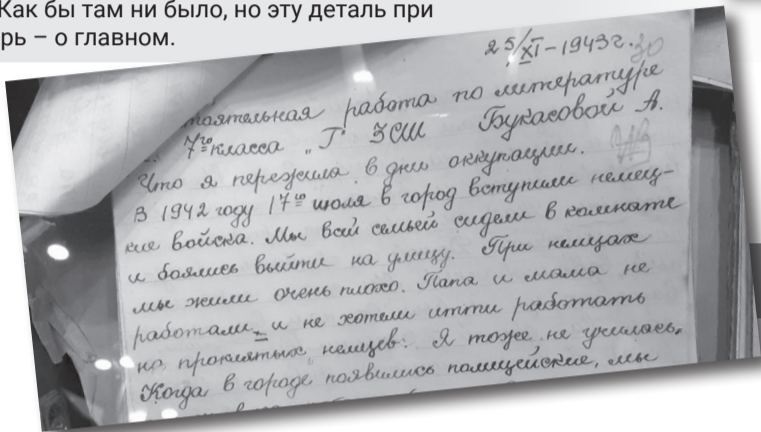 Как бы там ни было, но эту деталь при
рь – о главном.
25/XI – 1943 г. 30
тоятельная работа по литературе
7го класса „Г" ЗСШ Букасовой А.
Что я пережила в дни оккупации.
В 1942 году 17го июля в город вступили немец-
кие войска. Мы всей семьёй сидели в комнате
и боялись выйти на улицу. При немцах
мы жили очень плохо. Папа и мама не
работали и не хотели итти работать
на проклятых немцев. Я тоже не училась.
Когда в городе появились полицейские, мы